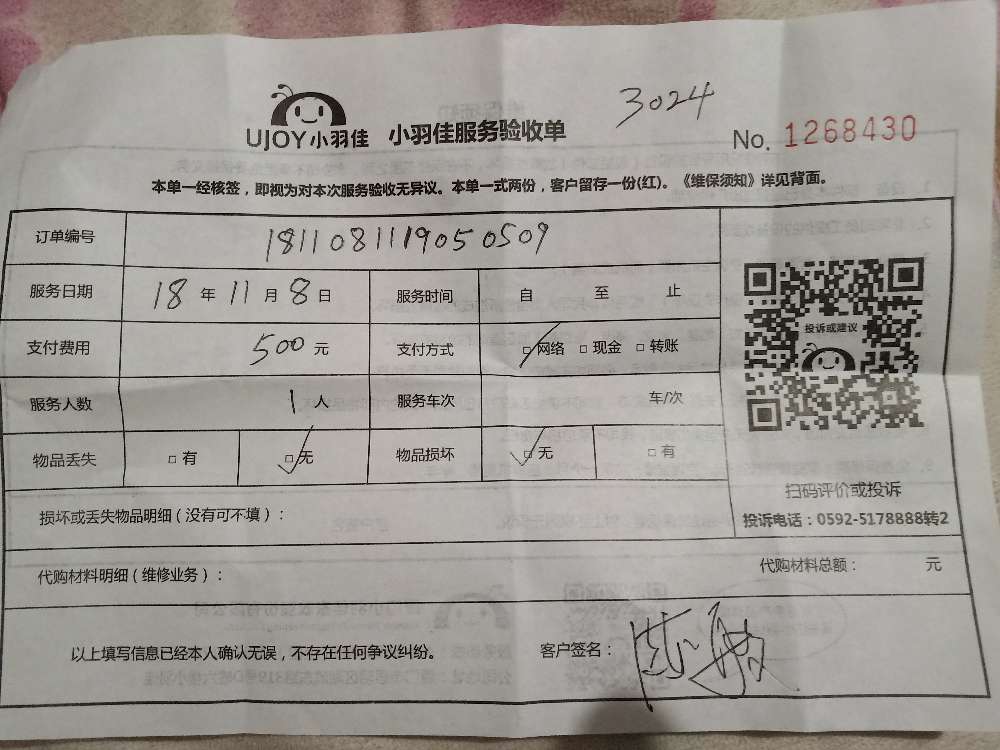 3024
UJOY小羽佳 小羽佳服务验收单
No. 1268430
本单一经核签，即视为对本次服务验收无异议。本单一式两份，客户留存一份(红)。《维保须知》详见背面。
订单编号 1811081119050509
服务日期 18年11月8日 服务时间 自 至 止
投诉或建议
支付费用 500元 支付方式 □网络 □现金 □转账
服务人数 1人 服务车次 车/次
物品丢失 □有 □无 物品损坏 □无 □有
扫码评价或投诉
损坏或丢失物品明细（没有可不填）：
投诉电话：0592-5178888转2
代购材料明细（维修业务）： 代购材料总额： 元
以上填写信息已经本人确认无误，不存在任何争议纠纷。 客户签名：